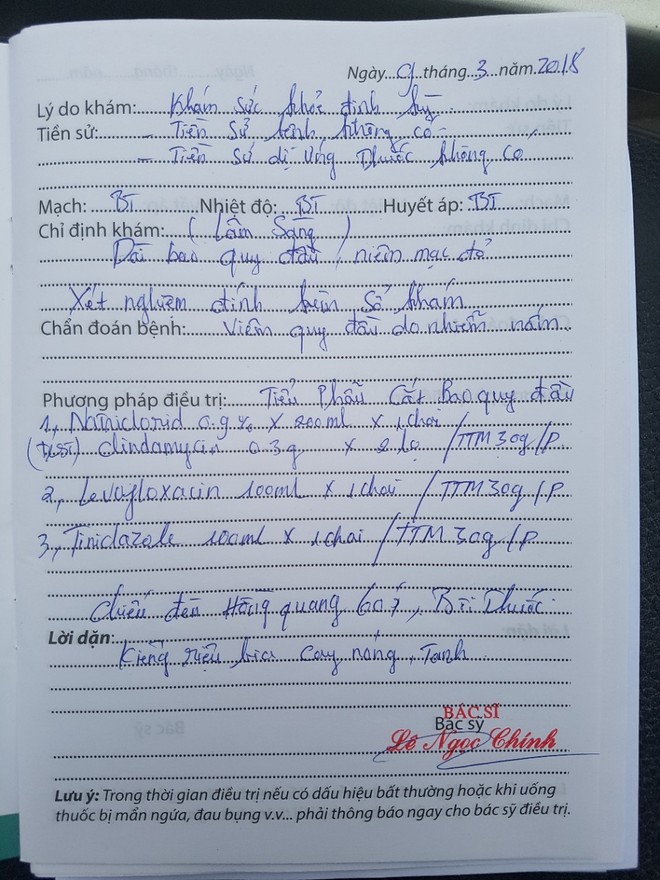 Ngày...9...tháng...3...năm...2018
Lý do khám: Khám sức khỏe định kỳ
Tiền sử: - Tiền sử bệnh không có -
- Tiền sử dị ứng thuốc không có
Mạch: BT Nhiệt độ: BT Huyết áp: BT
Chỉ định khám: (Lâm Sàng)
Dài bao quy đầu, niêm mạc đỏ
Xét nghiệm đính kèm sổ khám
Chẩn đoán bệnh: Viêm quy đầu do nhiễm nấm
Phương pháp điều trị: Tiểu Phẫu Cắt Bao quy đầu
1, Natriclorid 0.9% x 200ml x 1 chai
(test) Clindamycin 0.3g x 2 lọ /TTM 30g/P
2, Levofloxacin 100ml x 1 chai /TTM 30g/P
3, Tinidazole 100ml x 1 chai /TTM 30g/P
Chiếu đèn Hồng quang 60, Bôi Thuốc
Lời dặn:
Kiêng rượu bia cay nóng, Tanh
BÁC SĨ
Bác sỹ
Lê Ngọc Chính
Lưu ý: Trong thời gian điều trị nếu có dấu hiệu bất thường hoặc khi uống
thuốc bị mẩn ngứa, đau bụng v.v... phải thông báo ngay cho bác sỹ điều trị.